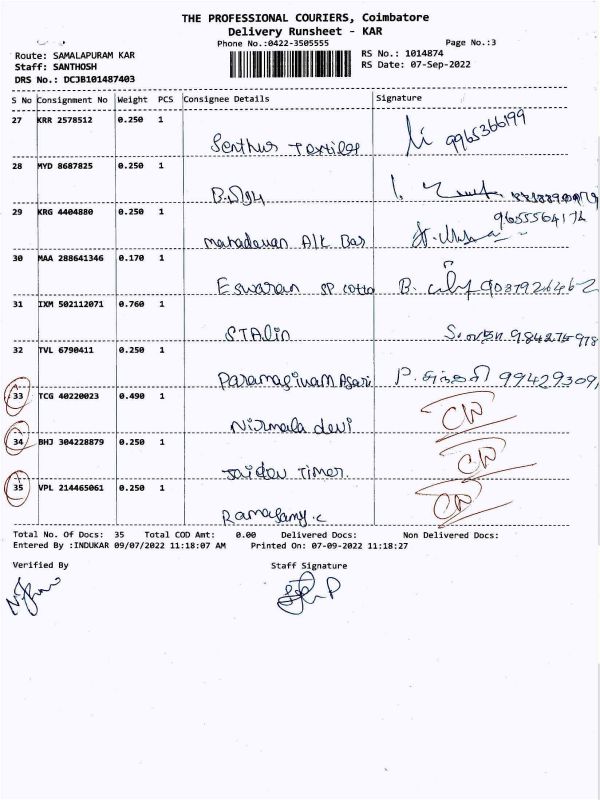 THE PROFESSIONAL COURIERS, Coimbatore
Delivery Runsheet - KAR
Phone No.:0422-3505555 Page No.:3
Route: SAMALAPURAM KAR RS No.: 1014874
Staff: SANTHOSH RS Date: 07-Sep-2022
DRS No.: DCJB101487403
S No Consignment No Weight PCS Consignee Details Signature
27 KRR 2578512 0.250 1
Senthur Textiles 9965366199
28 MYD 8687825 0.250 1
29 KRG 4404880 0.250 1
9655564174
mahadevan Alt Bar
30 MAA 288641346 0.170 1
Eswaran sp cotto B.
31 IXM 502112071 0.760 1
STAlin
32 TVL 6790411 0.250 1
99429309
33 TCG 40220023 0.490 1
Nirmala devi CW
34 BHJ 304228879 0.250 1
Jaidev Timer. CW
35 VPL 214465061 0.250 1
Ramasamy.c CW
Total No. Of Docs: 35 Total COD Amt: 0.00 Delivered Docs: Non Delivered Docs:
Entered By :INDUKAR 09/07/2022 11:18:07 AM Printed On: 07-09-2022 11:18:27
Verified By Staff Signature